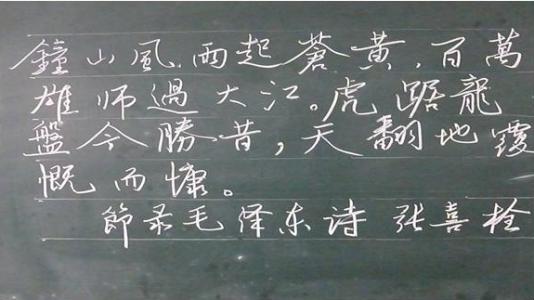 鐘山風雨起蒼黃,百萬
雄师過大江。虎踞龍
盤今勝昔,天翻地覆
慨而慷。
節录毛泽东诗 张喜栓